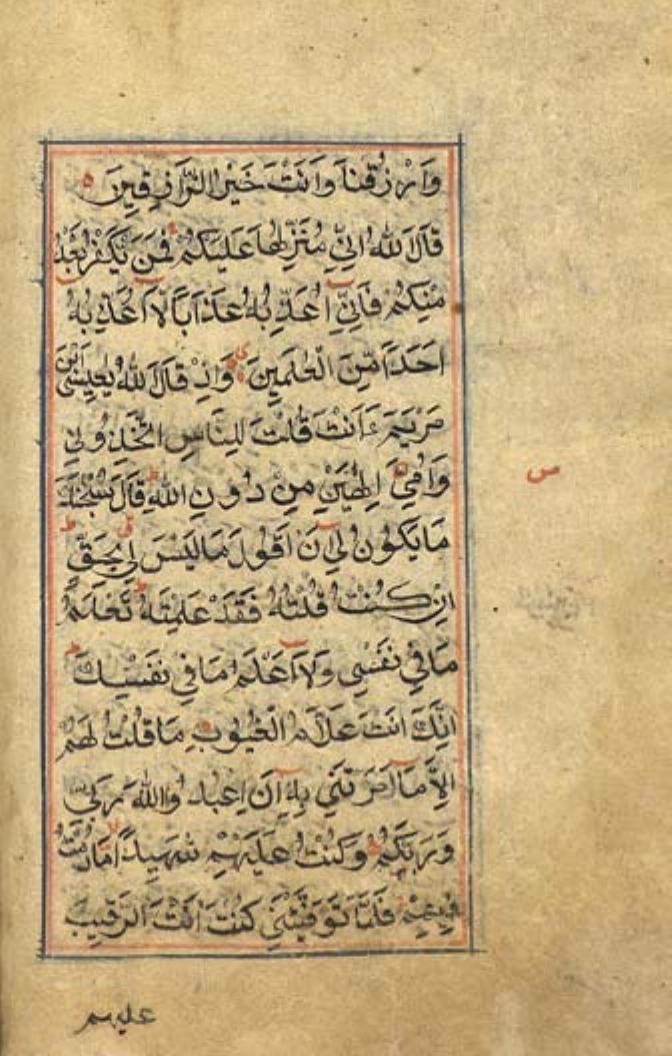 وَارْزُقْنَا وَاَنْتَ خَيْرُ الرَّازِقِينَ ه
قَالَ اللهُ اِنِّي مُنَزِّلُهَا عَلَيْكُمْ فَمَنْ يَكْفُرْ بَعْدُ
مِنْكُمْ فَاِنِّي اُعَذِّبُهُ عَذَابًا لَا اُعَذِّبُهُ
اَحَدًا مِنَ الْعٰلَمِينَ وَاِذْ قَالَ اللهُ يٰعِيسَى ابْنَ
مَرْيَمَ ءَاَنْتَ قُلْتَ لِلنَّاسِ اتَّخِذُونِي
وَاُمِّيَ اِلٰهَيْنِ مِنْ دُونِ اللهِ ط قَالَ سُبْحٰنَكَ
مَا يَكُونُ لِي اَنْ اَقُولَ مَا لَيْسَ لِي بِحَقٍّ ط
اِنْ كُنْتُ قُلْتُهُ فَقَدْ عَلِمْتَهُ ط تَعْلَمُ
مَا فِي نَفْسِي وَلَا اَعْلَمُ مَا فِي نَفْسِكَ ط
اِنَّكَ اَنْتَ عَلَّامُ الْغُيُوبِ مَا قُلْتُ لَهُمْ
اِلَّا مَا اَمَرْتَنِي بِهِ اَنِ اعْبُدُوا اللهَ رَبِّي
وَرَبَّكُمْ وَكُنْتُ عَلَيْهِمْ شَهِيدًا مَا دُمْتُ
فِيهِمْ فَلَمَّا تَوَفَّيْتَنِي كُنْتَ اَنْتَ الرَّقِيبَ
عليهم